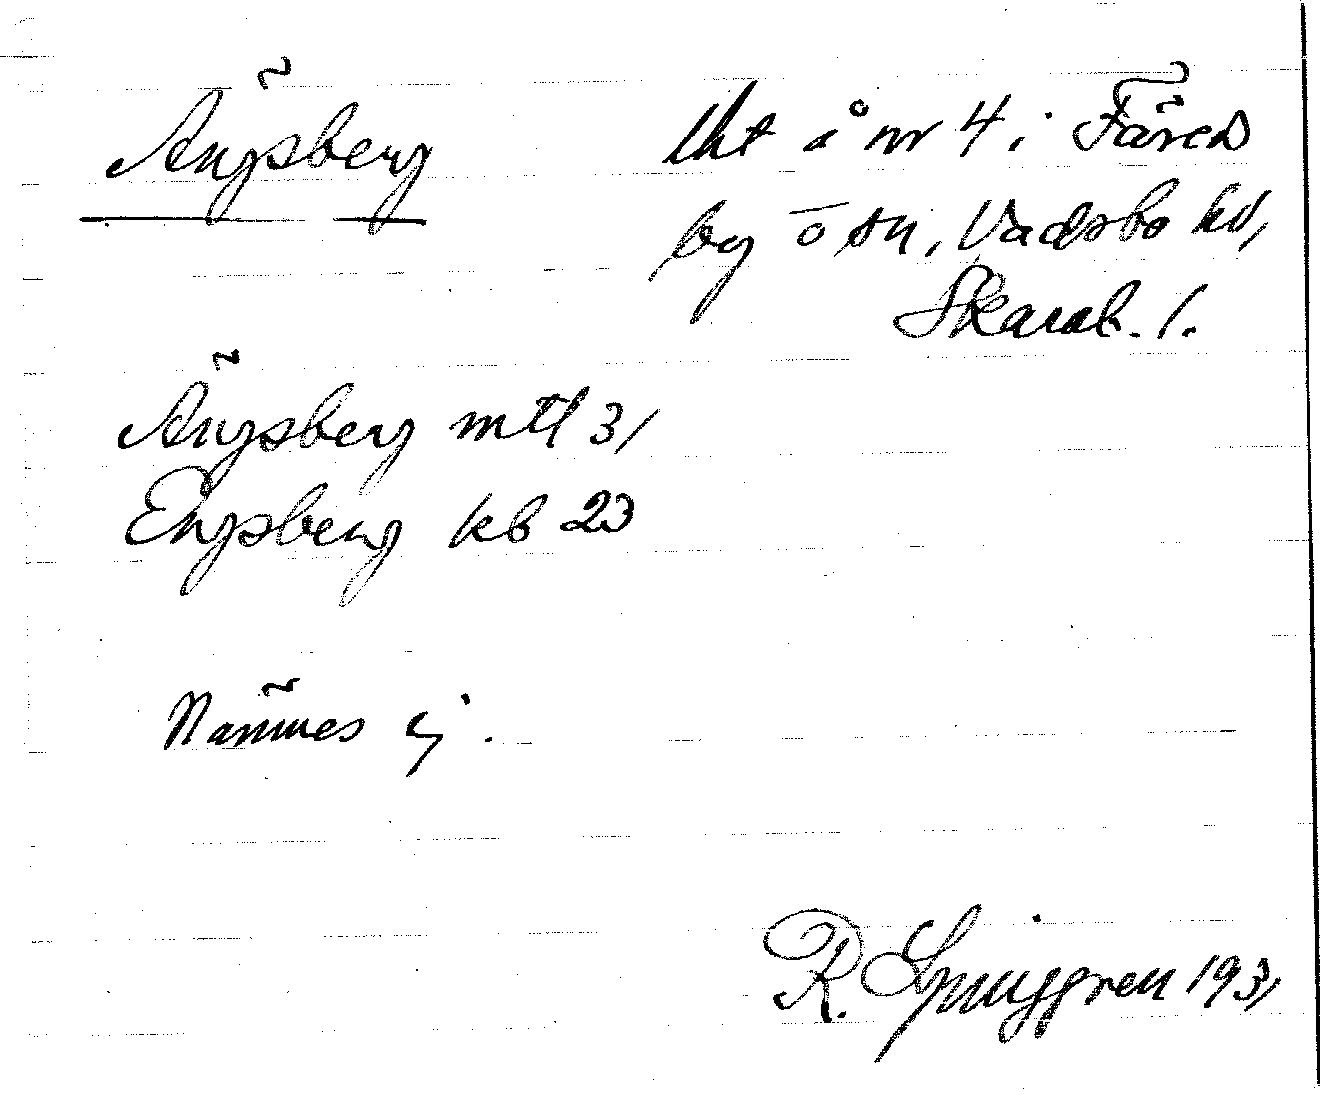 Ängsberg
lht å nr 4 i Färed
by o sn, Vadsbo hd,
Skarab. l.
Ängsberg mtl 31
Engsberg kb 23
Nämnes ej.
R. Ljunggren 1931